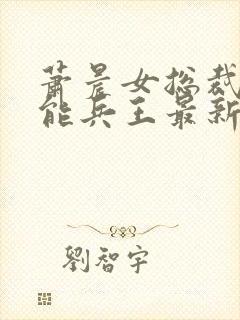 蕭晨女總裁
能兵王最新
劉智宇